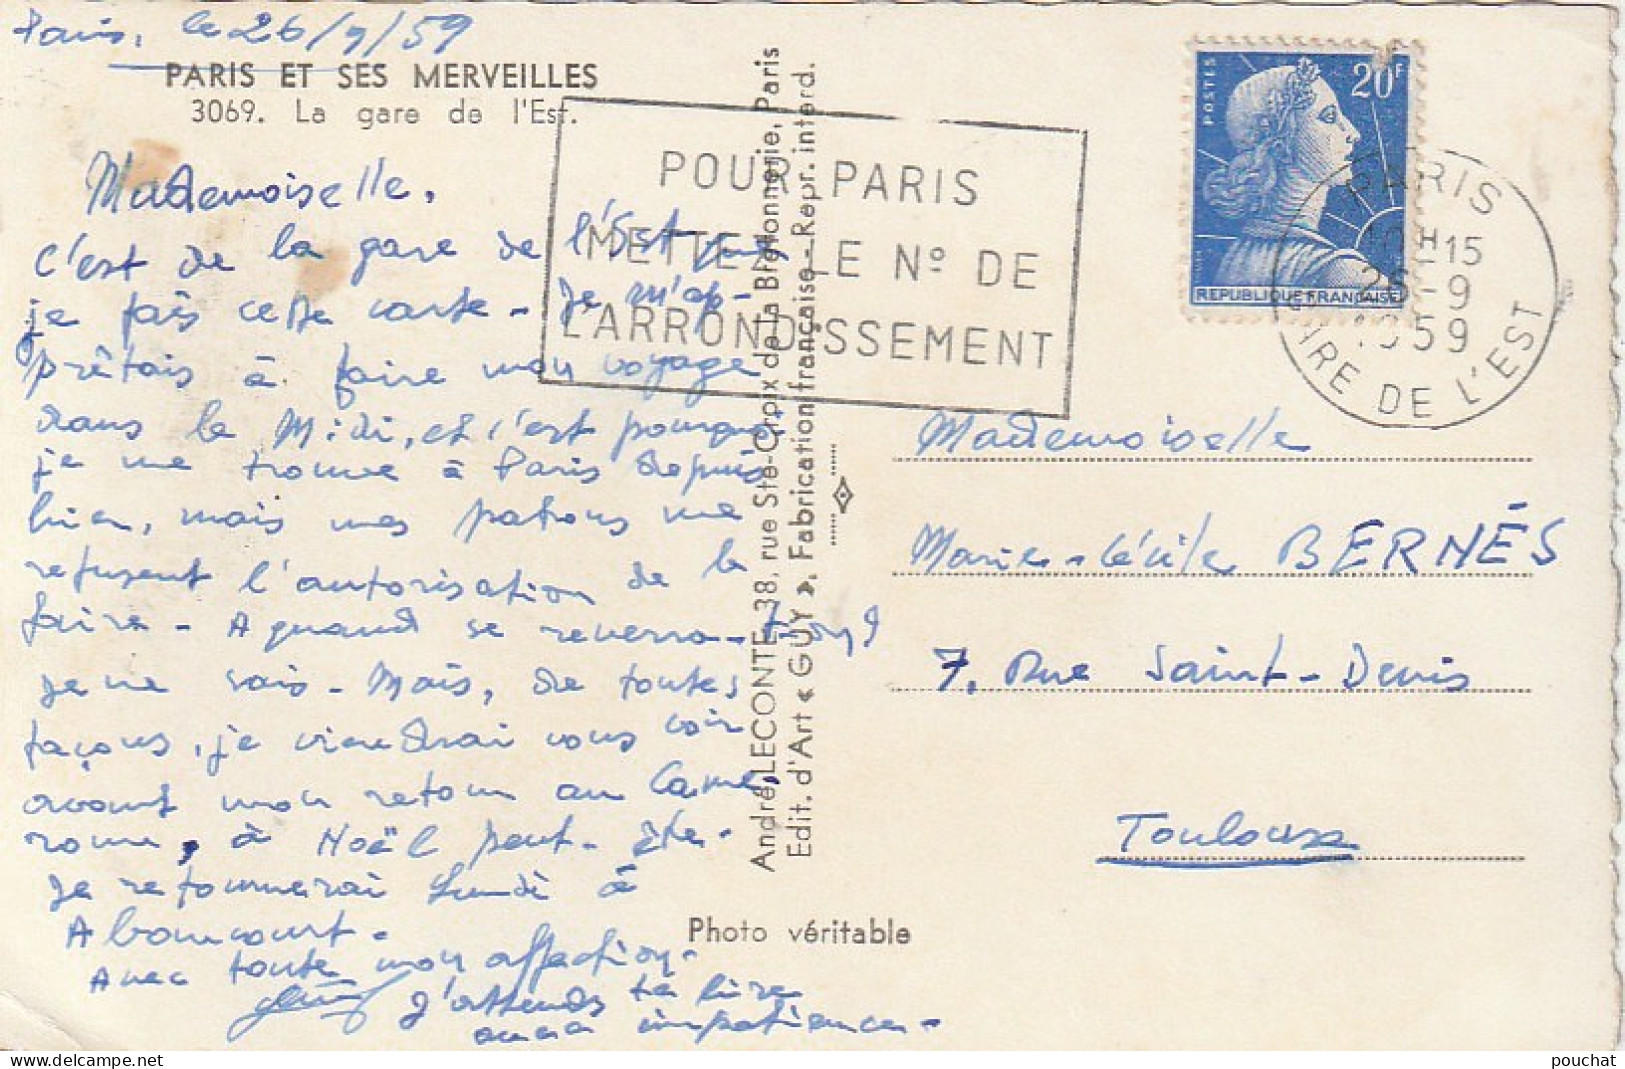 Paris, le 26/9/59
PARIS ET SES MERVEILLES
3069. La gare de l'Est.
Mademoiselle,
c'est de la gare de l'Est que
je fais cette carte - Je m'ap-
prêtais à faire mon voyage
dans le Midi, et c'est pourquoi
je me trouve à Paris depuis
hier, mais mes patrons me
refusent l'autorisation de le
faire - A quand se reverra-t-on ?
je ne sais - Mais, de toutes
façons, je viendrai vous voir
avant mon retour au Came
roun, à Noël peut-être -
Je retournerai Lundi à
Aboncourt -
Avec toute mon affection -
J'attends te lire
avec impatience -
André LECONTE, 38, rue Ste-Croix de la Bretonnerie, Paris
Edit. d'Art « GUY », Fabrication française - Repr. interd.
Photo véritable
POUR PARIS
METTEZ LE Nº DE
L'ARRONDISSEMENT
POSTES
20F
REPUBLIQUE FRANÇAISE
PARIS
10H15
26-9
1959
GARE DE L'EST
Mademoiselle
Marie-Cécile BERNÉS
7, Rue Saint-Denis
Toulouse
pouchat